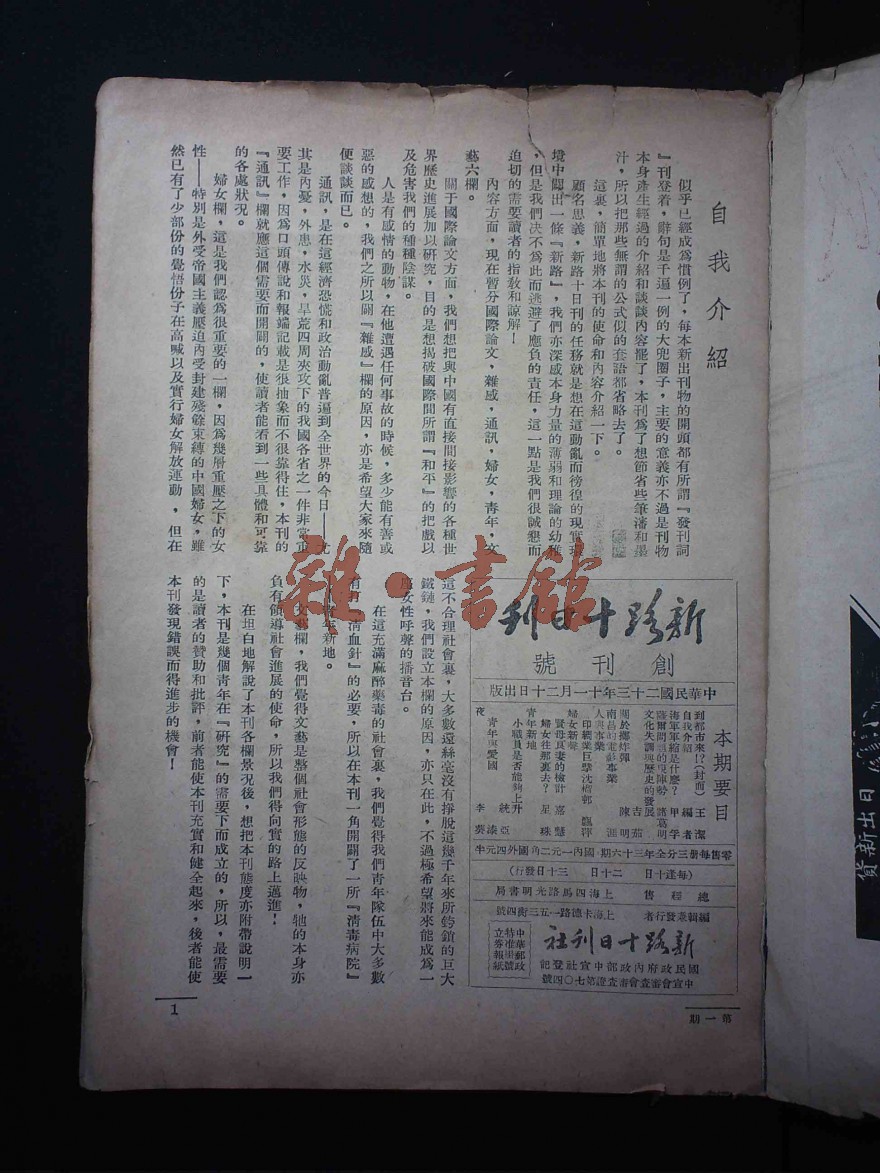 自我介紹
似乎已經成為慣例了，每本新出刊物的開頭都有所謂『發刊詞
』刊登着，辭句是千遍一例的大兜圈子，主要的意義亦不過是刊物
本身產生經過的介紹和談談內容罷了，本刊為了想節省些筆瀋和墨
汁，所以把那些無謂的公式似的套語都省略去了。
這裏，簡單地將本刊的使命和內容介紹一下。
顧名思義，新路十日刊的任務就是想在這動亂而徬徨的現實環
境中闢出一條『新路』，我們亦深感本身力量的薄弱和理論的幼稚
，但是我們决不為此而逃避了應負的責任，這一點是我們很誠懇而
迫切的需要讀者的指教和諒解！
內容方面，現在暫分國際論文，雜感，通訊，婦女，青年，文
藝六欄。
關于國際論文方面，我們想把與中國有直接間接影響的各種世
界歷史進展加以研究，目的是想揭破國際間所謂『和平』的把戲以
及危害我們的種種陰謀。
人是有感情的動物，在他遭遇任何事故的時候，多少能有善或
惡的感想的，我們之所以闢『雜感』欄的原因，亦是希望大家來隨
便談談而已。
通訊，是在這經濟恐慌和政治動亂普遍到全世界的今日——尤
其是內憂，外患，水災，旱荒四周夾攻下的我國各省之一件非常重
要工作，因為口頭傳說和報端記載是很抽象而不很靠得住，本刊的
『通訊』欄就應這個需要而開闢的，使讀者能看到一些具體和可靠
的各處狀況。
婦女欄，這是我們認為很重要的一欄，因為幾層重壓之下的女
性——特別是外受帝國主義壓迫內受封建殘餘束縛的中國婦女，雖
然已有了少部份的覺悟份子在高喊以及實行婦女解放運動，但在
這不合理社會裏，大多數還絲毫沒有掙脫這幾千年來所銬鎖的巨大
鐵鏈，我們設立本欄的原因，亦只在此，不過極希望將來能成為一
座女性呼聲的播音台。
在這充滿麻醉藥毒的社會裏，我們覺得我們青年隊伍中大多數
有打『清血針』的必要，所以在本刊一角開闢了一所『清毒病院』
——青年新地。
文藝欄，我們覺得文藝是整個社會形態的反映物，牠的本身亦
負有領導社會進展的使命，所以我們得向實的路上邁進！
在坦白地解說了本刊各欄景况後，想把本刊態度亦附帶說明一
下，本刊是幾個青年在『研究』的需要下而成立的，所以，最需要
的是讀者的贊助和批評，前者能使本刊充實和健全起來，後者能使
本刊發現錯誤而得進步的機會！
新路十日刊
創刊號
中華民國二十三年十一月二十日出版
本期要目
到都市來!?（封面） 王潔
自我介紹 編者
海軍軍縮是什麼？ 甲學
薩爾問題的現陣勢 諸葛明
文化失調與歷史的發展 茄
關於鄉炸彈 吉明
南昌的電影事業 陳涯
人與事業
印綢業巨擘沈楷郭 龐萍
婦女新聲
賢母良妻的檢討 嘉慧
婦女往那裏去？ 星珠
青年新地
小職員是否能夠上升 統亞
青年與愛國 李溱
夜 葵
零售每册三分全年三十六期・國內一元二角國外四元半
（每逢十日 二十日 三十日發行）
總經售 上海四馬路光明書局
編輯兼發行者 上海卡德路一五三衖四號
新路十日刊社
國民政府內政部中宣社登記
中宣會審查會審查證第七〇四號
中華郵政
特准掛號
立券報紙
第一期
1
雜・書館
貨新出日